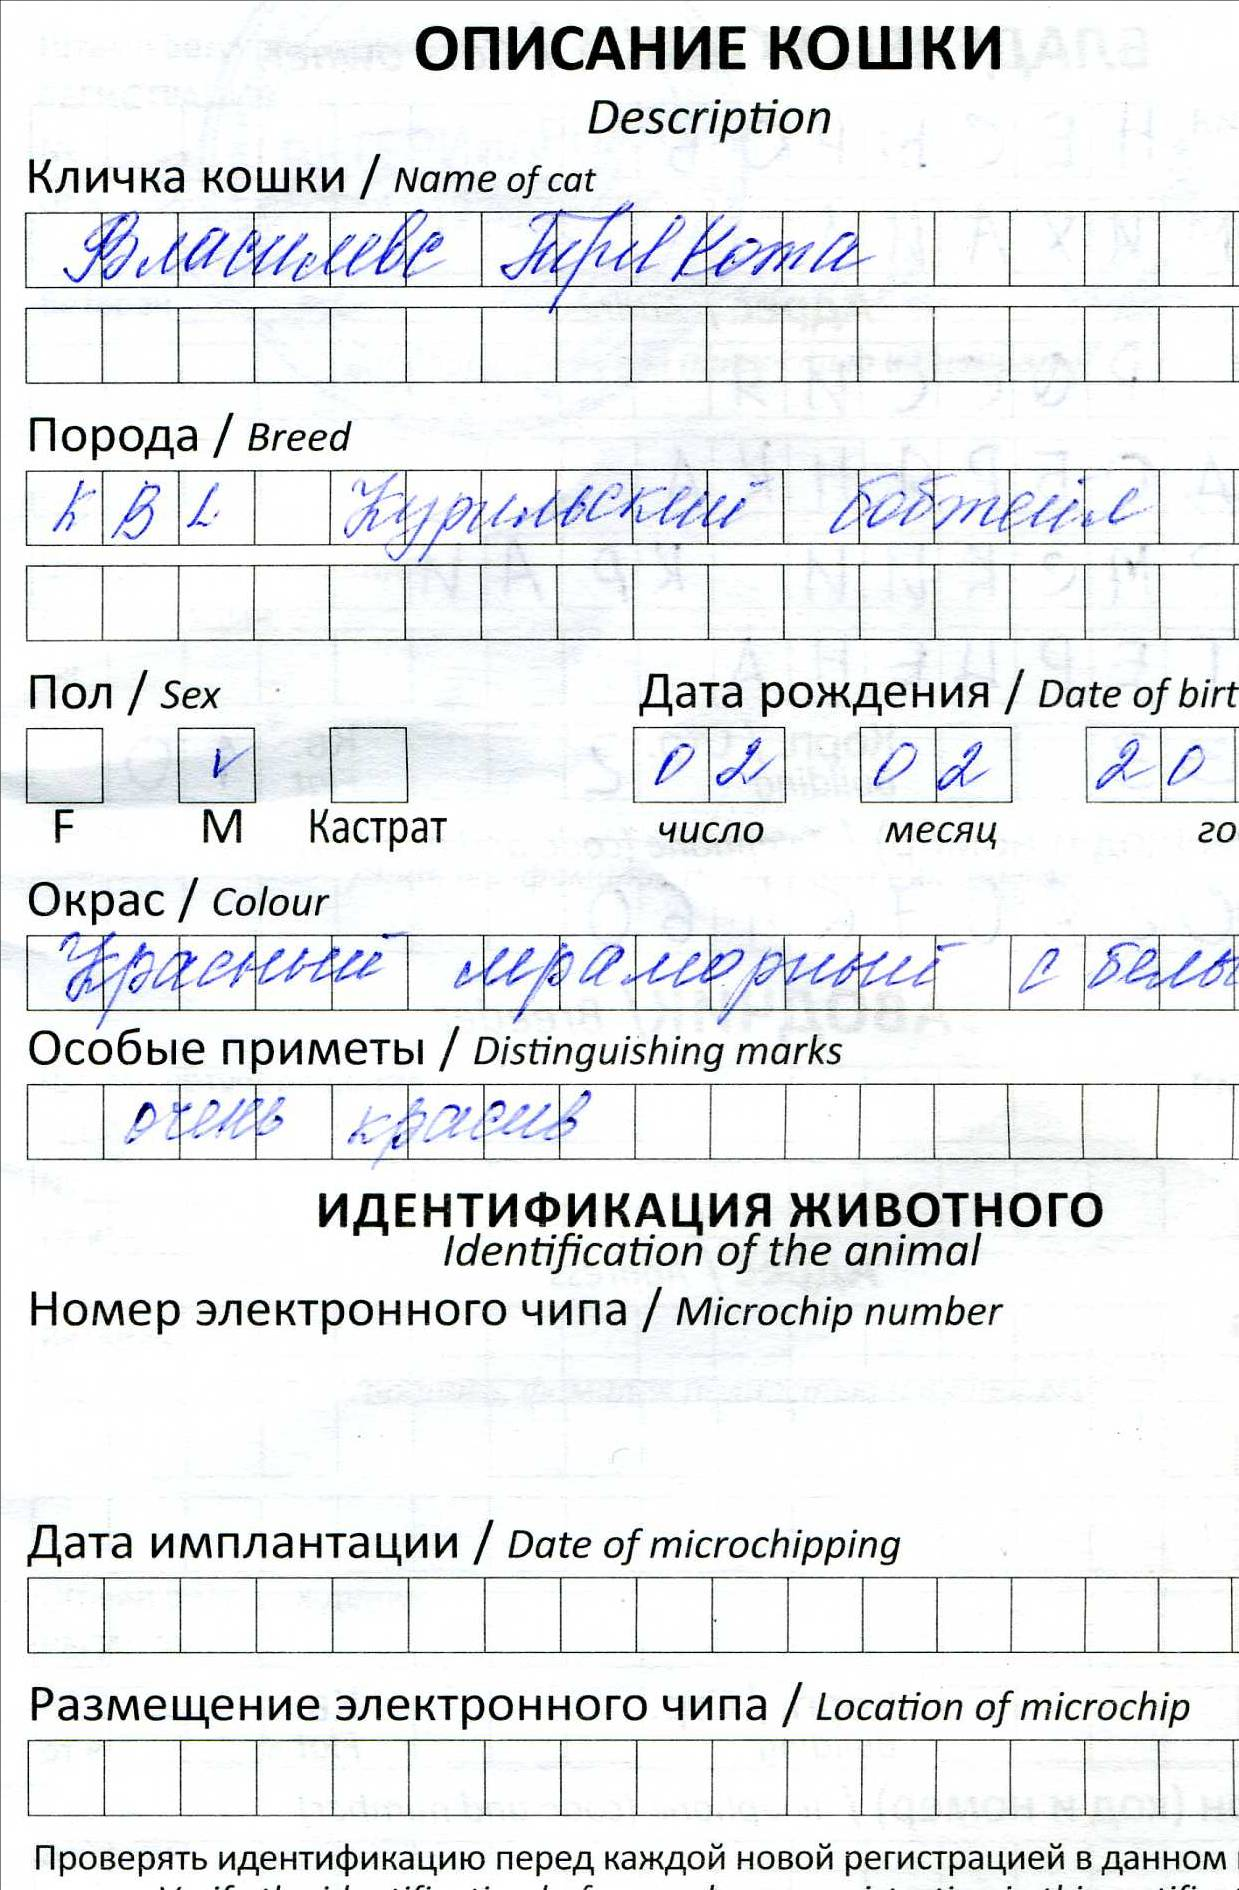 ОПИСАНИЕ КОШКИ
Description
Кличка кошки / Name of cat
Власилевс ТриКота
Порода / Breed
KBL Курильский бобтейл
Пол / Sex
Дата рождения / Date of birt
V 02 02 20
F M Кастрат число месяц го
Окрас / Colour
Красный мраморный с белы
Особые приметы / Distinguishing marks
очень красив
ИДЕНТИФИКАЦИЯ ЖИВОТНОГО
Identification of the animal
Номер электронного чипа / Microchip number
Дата имплантации / Date of microchipping
Размещение электронного чипа / Location of microchip
Проверять идентификацию перед каждой новой регистрацией в данном